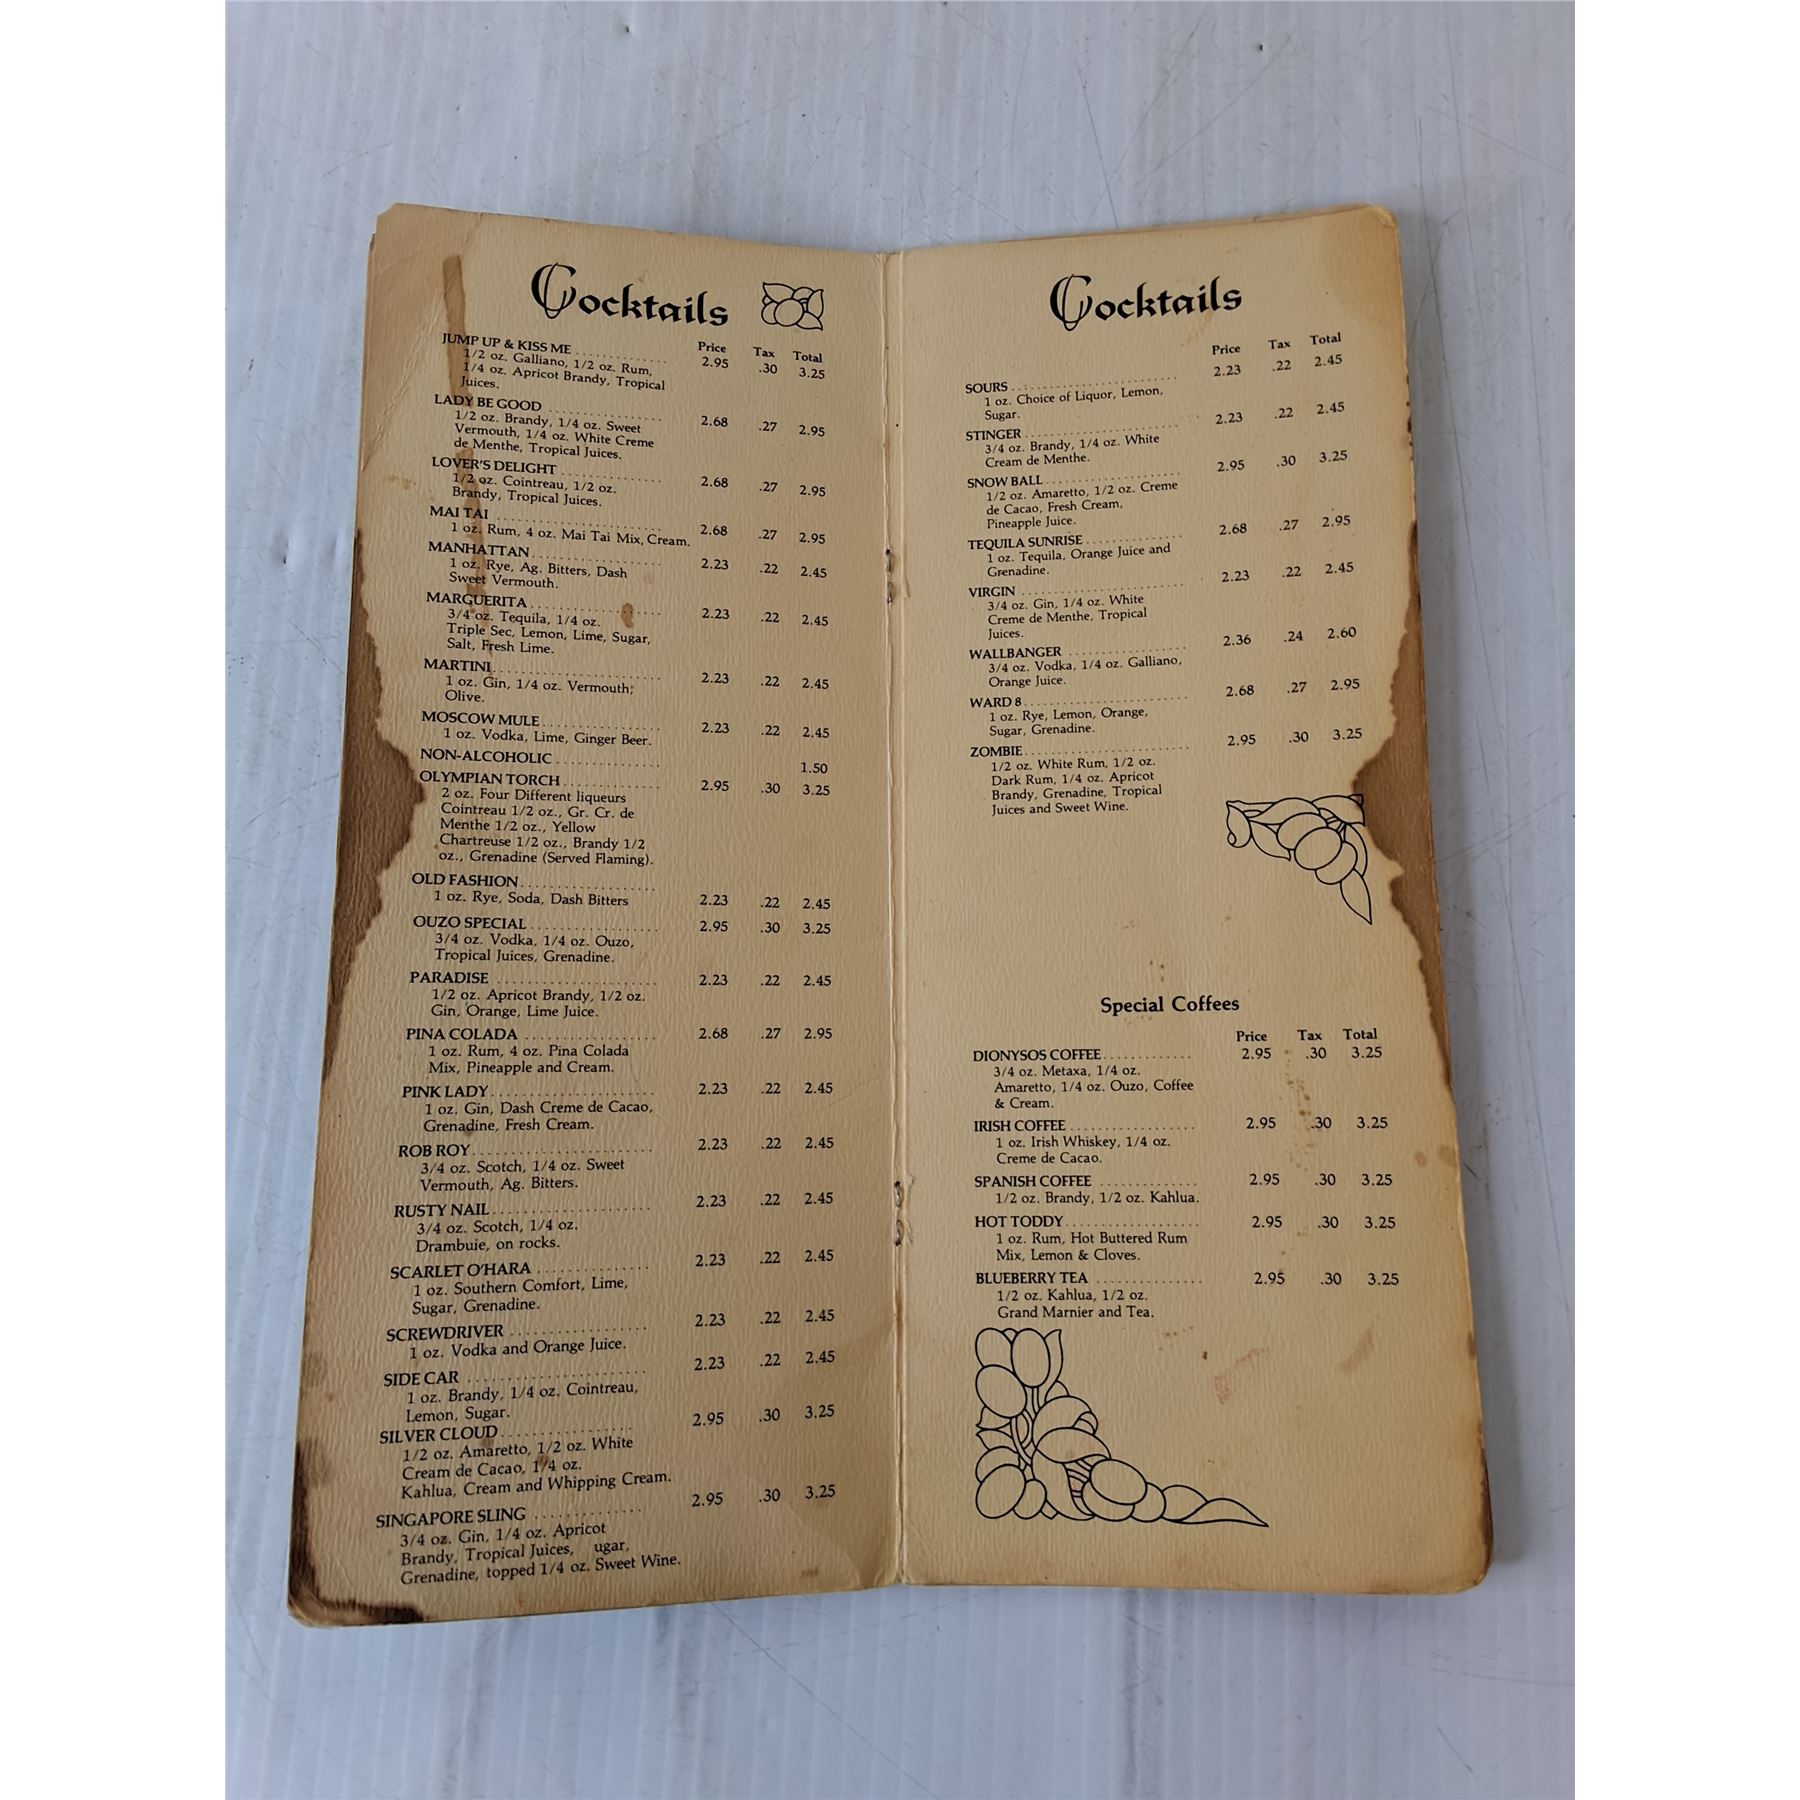 Cocktails
Price Tax Total
JUMP UP & KISS ME 2.95 .30 3.25
1/2 oz. Galliano, 1/2 oz. Rum,
1/4 oz. Apricot Brandy, Tropical
Juices.
LADY BE GOOD 2.68 .27 2.95
1/2 oz. Brandy, 1/4 oz. Sweet
Vermouth, 1/4 oz. White Creme
de Menthe, Tropical Juices.
LOVER'S DELIGHT 2.68 .27 2.95
1/2 oz. Cointreau, 1/2 oz.
Brandy, Tropical Juices.
MAI TAI 2.68 .27 2.95
1 oz. Rum, 4 oz. Mai Tai Mix, Cream.
MANHATTAN 2.23 .22 2.45
1 oz. Rye, Ag. Bitters, Dash
Sweet Vermouth.
MARGUERITA 2.23 .22 2.45
3/4 oz. Tequila, 1/4 oz.
Triple Sec, Lemon, Lime, Sugar,
Salt, Fresh Lime.
MARTINI 2.23 .22 2.45
1 oz. Gin, 1/4 oz. Vermouth;
Olive.
MOSCOW MULE 2.23 .22 2.45
1 oz. Vodka, Lime, Ginger Beer.
NON-ALCOHOLIC 1.50
OLYMPIAN TORCH 2.95 .30 3.25
2 oz. Four Different liqueurs
Cointreau 1/2 oz., Gr. Cr. de
Menthe 1/2 oz., Yellow
Chartreuse 1/2 oz., Brandy 1/2
oz., Grenadine (Served Flaming).
OLD FASHION
1 oz. Rye, Soda, Dash Bitters 2.23 .22 2.45
OUZO SPECIAL 2.95 .30 3.25
3/4 oz. Vodka, 1/4 oz. Ouzo,
Tropical Juices, Grenadine.
PARADISE 2.23 .22 2.45
1/2 oz. Apricot Brandy, 1/2 oz.
Gin, Orange, Lime Juice.
PINA COLADA 2.68 .27 2.95
1 oz. Rum, 4 oz. Pina Colada
Mix, Pineapple and Cream.
PINK LADY 2.23 .22 2.45
1 oz. Gin, Dash Creme de Cacao,
Grenadine, Fresh Cream.
ROB ROY 2.23 .22 2.45
3/4 oz. Scotch, 1/4 oz. Sweet
Vermouth, Ag. Bitters.
RUSTY NAIL 2.23 .22 2.45
3/4 oz. Scotch, 1/4 oz.
Drambuie, on rocks.
SCARLET O'HARA 2.23 .22 2.45
1 oz. Southern Comfort, Lime,
Sugar, Grenadine.
SCREWDRIVER 2.23 .22 2.45
1 oz. Vodka and Orange Juice.
SIDE CAR 2.23 .22 2.45
1 oz. Brandy, 1/4 oz. Cointreau,
Lemon, Sugar.
SILVER CLOUD 2.95 .30 3.25
1/2 oz. Amaretto, 1/2 oz. White
Cream de Cacao, 1/4 oz.
Kahlua, Cream and Whipping Cream.
SINGAPORE SLING 2.95 .30 3.25
3/4 oz. Gin, 1/4 oz. Apricot
Brandy, Tropical Juices, ugar,
Grenadine, topped 1/4 oz. Sweet Wine.
Cocktails
Price Tax Total
SOURS 2.23 .22 2.45
1 oz. Choice of Liquor, Lemon,
Sugar.
STINGER 2.23 .22 2.45
3/4 oz. Brandy, 1/4 oz. White
Cream de Menthe.
SNOW BALL 2.95 .30 3.25
1/2 oz. Amaretto, 1/2 oz. Creme
de Cacao, Fresh Cream,
Pineapple Juice.
TEQUILA SUNRISE 2.68 .27 2.95
1 oz. Tequila, Orange Juice and
Grenadine.
VIRGIN 2.23 .22 2.45
3/4 oz. Gin, 1/4 oz. White
Creme de Menthe, Tropical
Juices.
WALLBANGER 2.36 .24 2.60
3/4 oz. Vodka, 1/4 oz. Galliano,
Orange Juice.
WARD 8 2.68 .27 2.95
1 oz. Rye, Lemon, Orange,
Sugar, Grenadine.
ZOMBIE 2.95 .30 3.25
1/2 oz. White Rum, 1/2 oz.
Dark Rum, 1/4 oz. Apricot
Brandy, Grenadine, Tropical
Juices and Sweet Wine.
Special Coffees
Price Tax Total
DIONYSOS COFFEE 2.95 .30 3.25
3/4 oz. Metaxa, 1/4 oz.
Amaretto, 1/4 oz. Ouzo, Coffee
& Cream.
IRISH COFFEE 2.95 .30 3.25
1 oz. Irish Whiskey, 1/4 oz.
Creme de Cacao.
SPANISH COFFEE 2.95 .30 3.25
1/2 oz. Brandy, 1/2 oz. Kahlua.
HOT TODDY 2.95 .30 3.25
1 oz. Rum, Hot Buttered Rum
Mix, Lemon & Cloves.
BLUEBERRY TEA 2.95 .30 3.25
1/2 oz. Kahlua, 1/2 oz.
Grand Marnier and Tea.